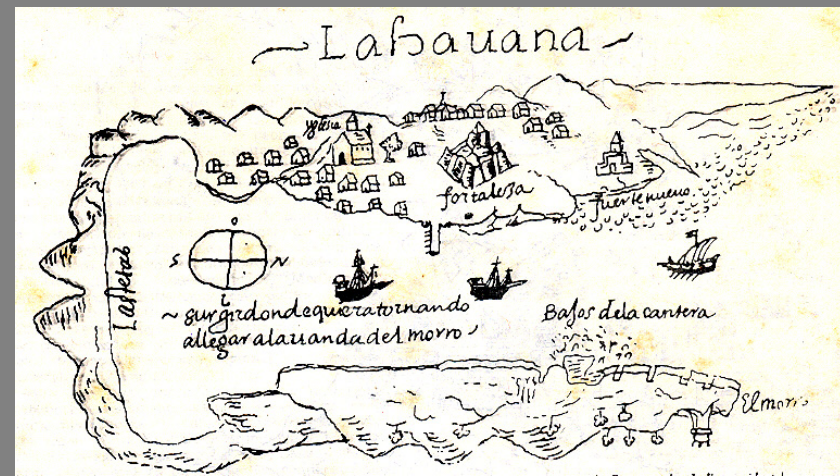 Lahauana
yglesia
fortaleza
fuerte nueuo
O
S N
L
Las tetas
surgir donde quiera tornando
allegar a la uanda del morro
Baxos de la cantera
El morro